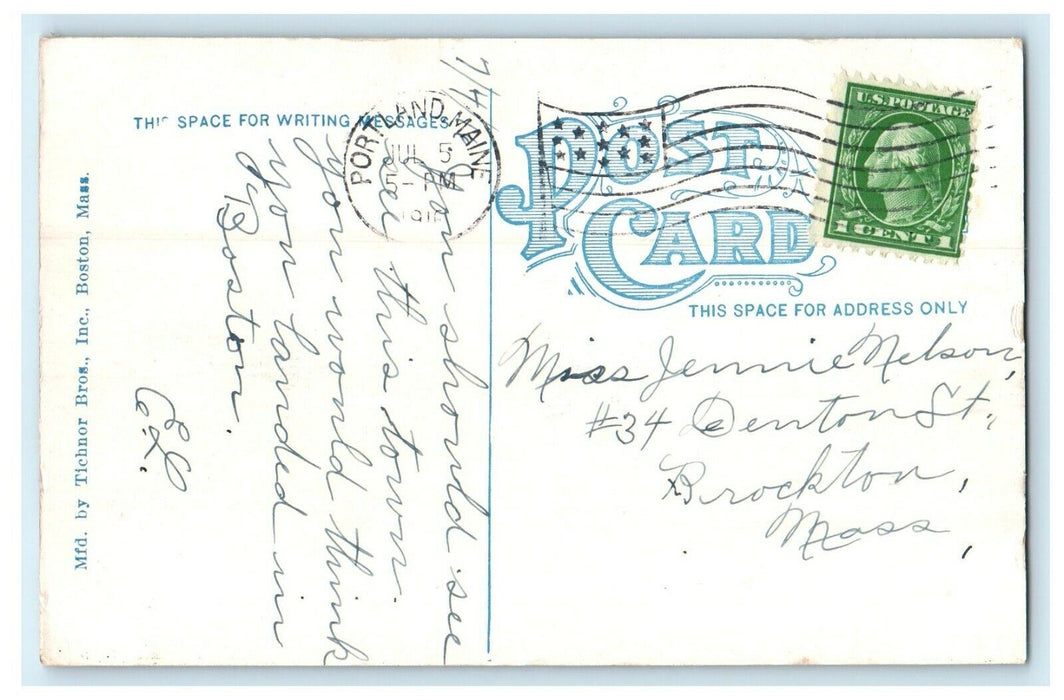 Mfd. by Tichnor Bros., Inc., Boston, Mass.
THIS SPACE FOR WRITING MESSAGES
7/4
You should see
this town.
you would think
you landed in
Boston.
PORTLAND, MAINE
JUL 5
5 - PM
POST
CARD
U.S. POSTAGE
1 CENT 1
THIS SPACE FOR ADDRESS ONLY
Miss Jennie Nelson,
#34 Denton St.,
Brockton,
Mass,